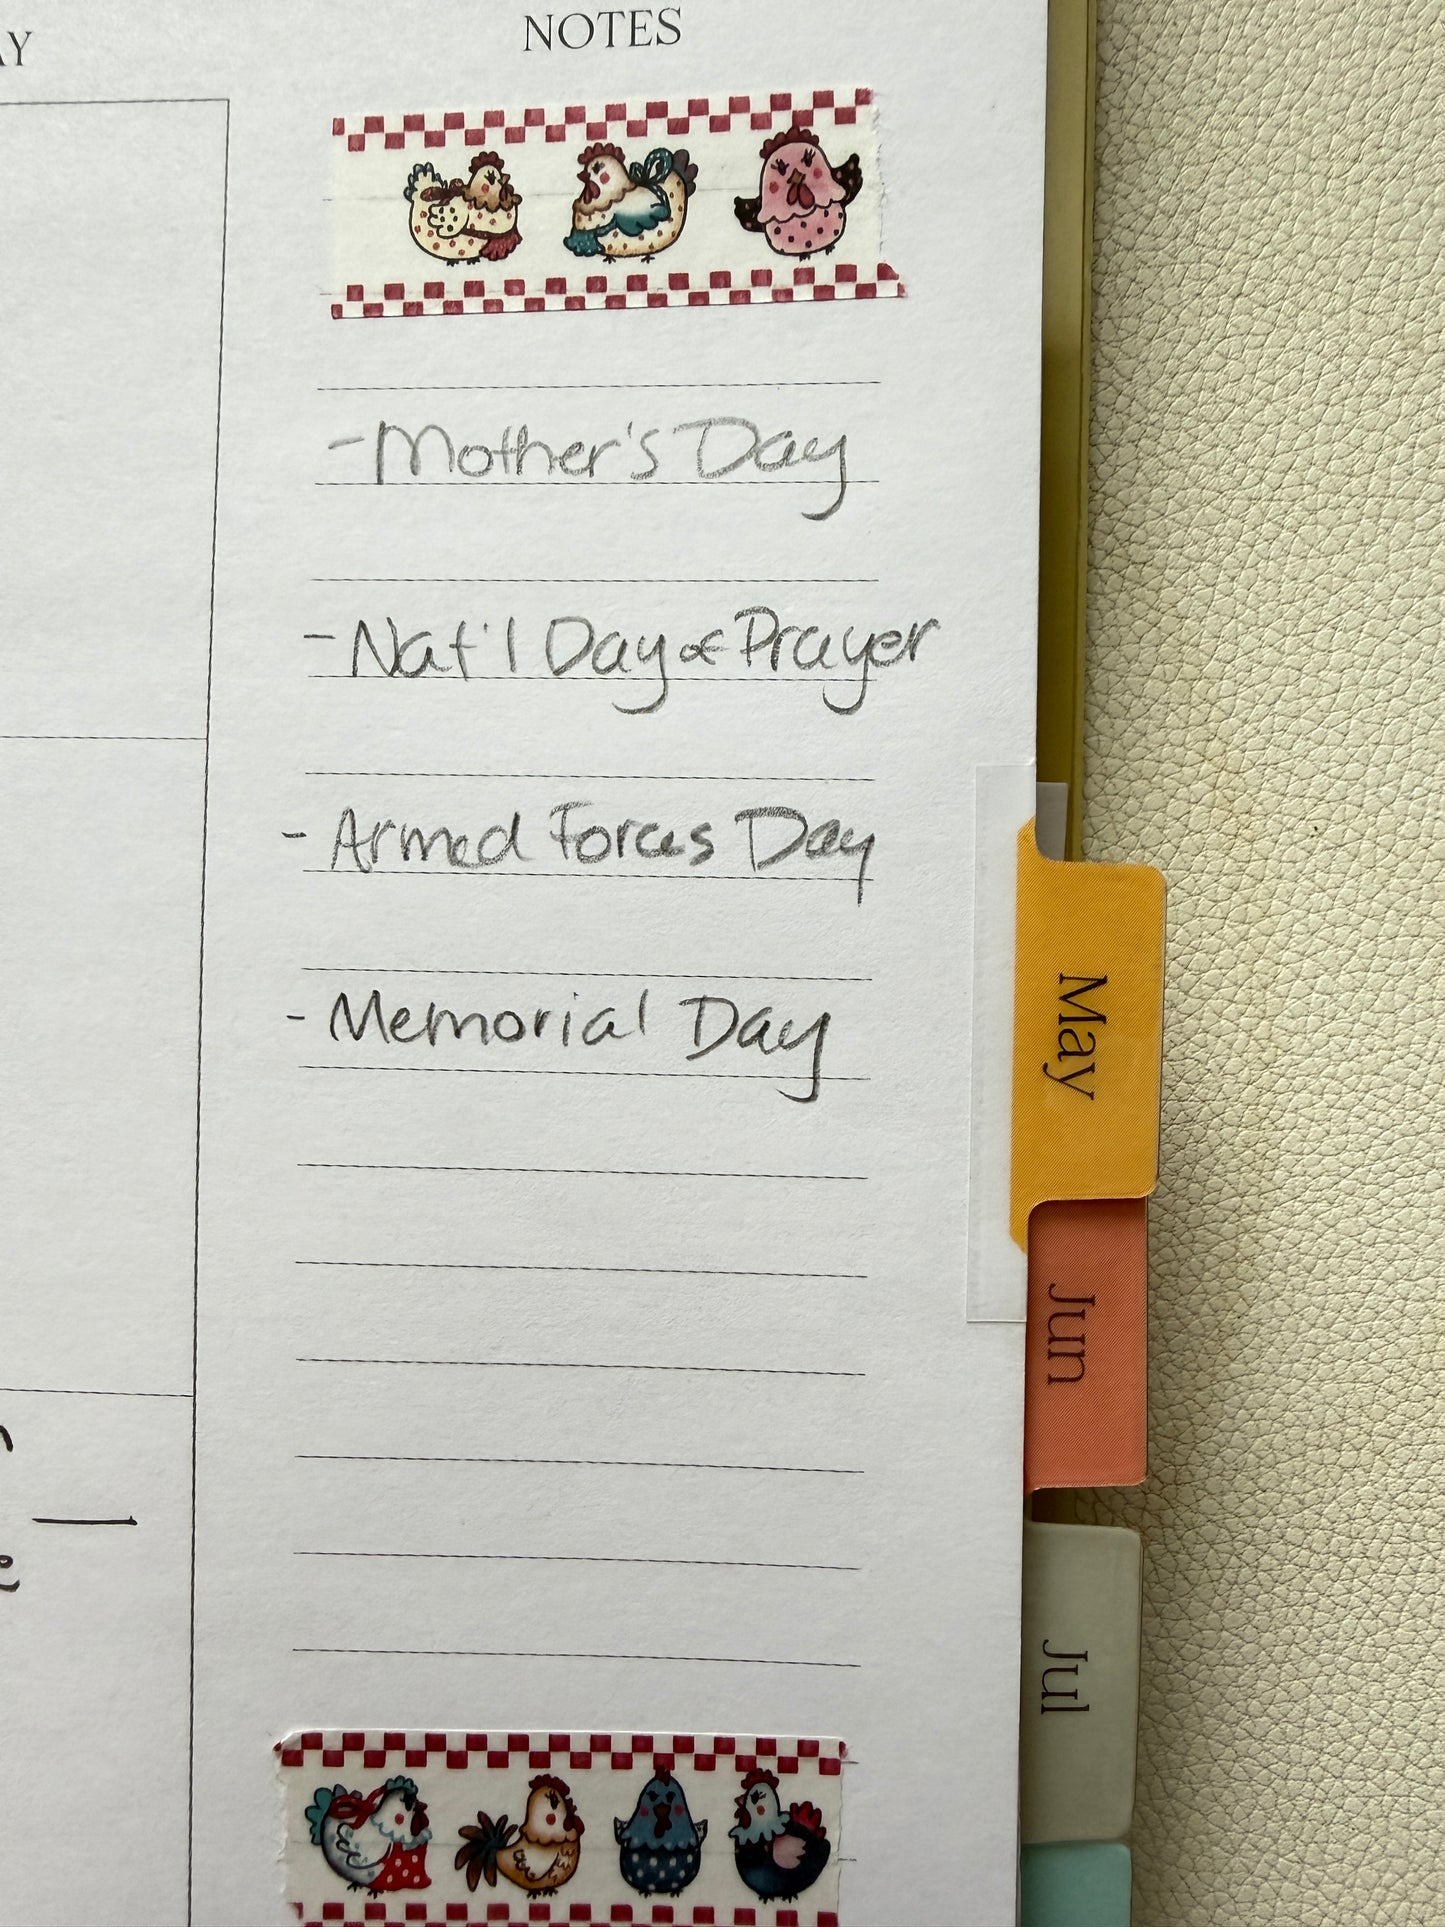 AY
NOTES
-Mother's Day
-Nat'l Day of Prayer
- Armed Forces Day
- Memorial Day
May
Jun
Jul